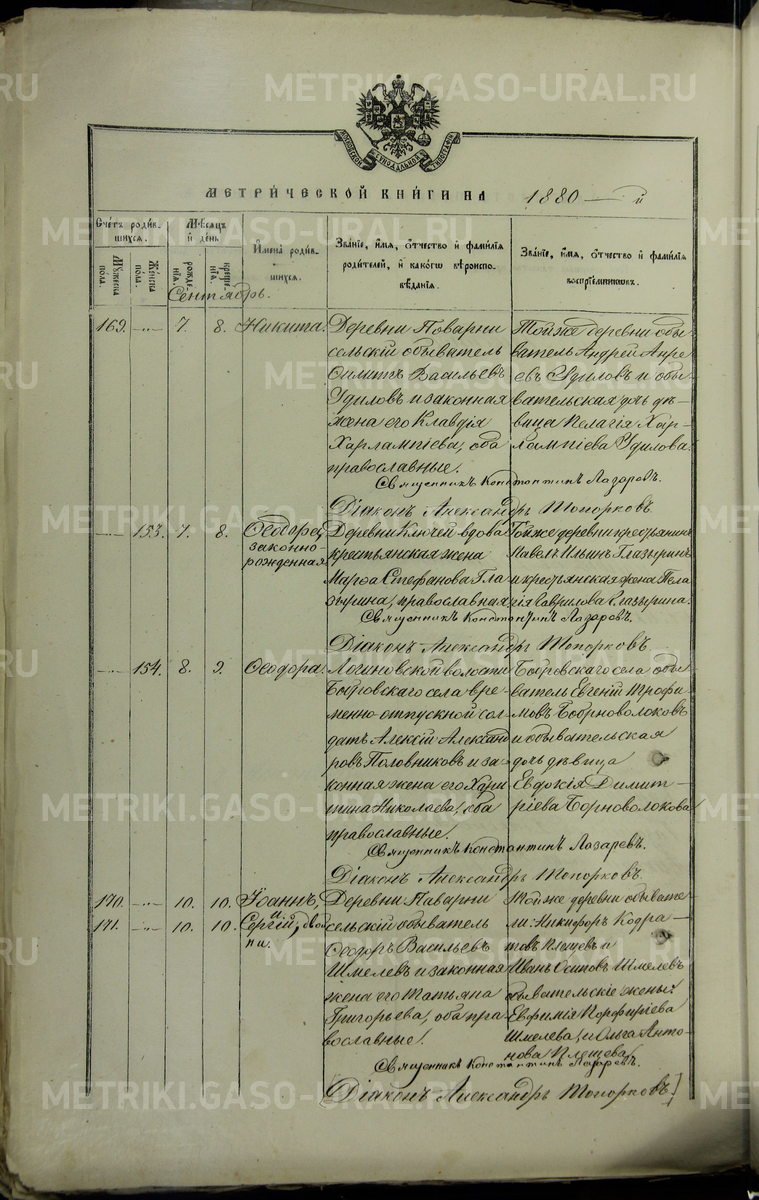 METRIKI.GASO-URAL.RU
МЕТРИЧЕСКОЙ КНИГИ НА 1880 — й
Счетъ родившихся.
Мѣсяцъ и день
Имена родившихся.
Званіе, имя, отчество и фамилія родителей, и какого вѣроисповѣданія.
Званіе, имя, отчество и фамилія воспріемниковъ.
Мужеска пола.
Женска пола.
рожденія.
крещенія.
Сентябрь.
169. 7. 8. Никита.
Деревни Поварни
сельскій обыватель
Василъевъ
Удиловъ и законная
жена его Клавдія
Харлампіева, оба
православные.
Той же деревни обы-
ватель Андрей Андре-
евъ Удиловъ и обы-
вательская дочь дѣ-
вица Пелагія Хар-
лампіева Удилова.
Священникъ Константинъ Лазаревъ.
Діаконъ Александръ Топорковъ.
153. 7. 8. Ѳеодора, законно-
рожденная
Деревни Ключей вдова
крестьянская жена
Марѳа Стефанова Гла-
зырина, православная
Той же деревни крестьянинъ
Павелъ Ильинъ Глазыринъ
и крестьянская жена Пела-
гія Гаврилова Глазырина.
Священникъ Константинъ Лазаревъ.
Діаконъ Александръ Топорковъ.
154. 8. 9. Ѳеодора.
Логиновской волости
Бобровскаго села вре-
менно отпускной сол-
датъ Алексій Александ-
ровъ Половниковъ и за-
конная жена его Хари-
тина Николаева, оба
православные.
Бобровскаго села обы-
ватель Евгеній Трофи-
мовъ Боборноволоковъ
и обывательская
дочь дѣвица
Евдокія Димит-
ріева Борноволокова
Священникъ Константинъ Лазаревъ.
Діаконъ Александръ Топорковъ.
170. 10. 10. Іоаннъ,
и
171. 10. 10. Сергій, двой-
ни.
Деревни Паварни
сельскій обыватель
Ѳеодоръ Васильевъ
Шмелевъ и законная
жена его Татьяна
Григорьева, оба пра-
вославные.
Той же деревни обывате-
ли: Никифоръ Кодра-
товъ Плещевъ и
Иванъ Осиповъ Шмелевъ
обывательскіе жены:
Евфимія Порфиріева
Шмелева, и Ольга Анто-
нова Плещева.
Священникъ Константинъ Лазаревъ.
Діаконъ Александръ Топорковъ.